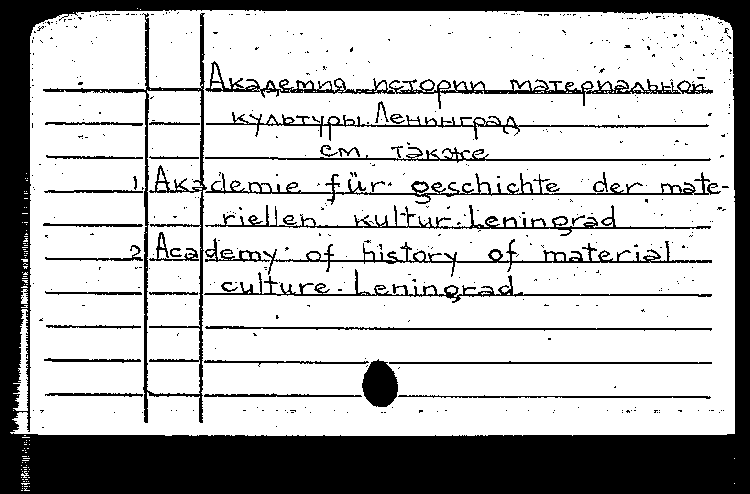 Академия истории материальной
культуры. Ленинград
см. также
1. Akademie für geschichte der mate-
riellen kultur. Leningrad
2. Academy of history of material
culture. Leningrad.